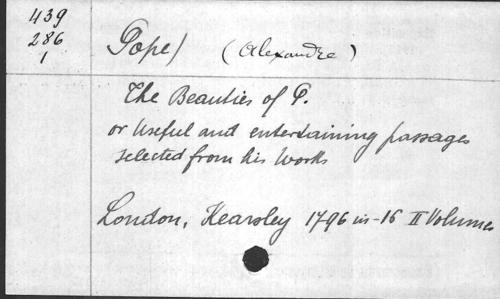 439
286
1
Pope) (Alexandre)
The Beauties of P.
or Useful and entertaining passages
selected from his Works
London, Kearsley 1796 in-16 II Volumes